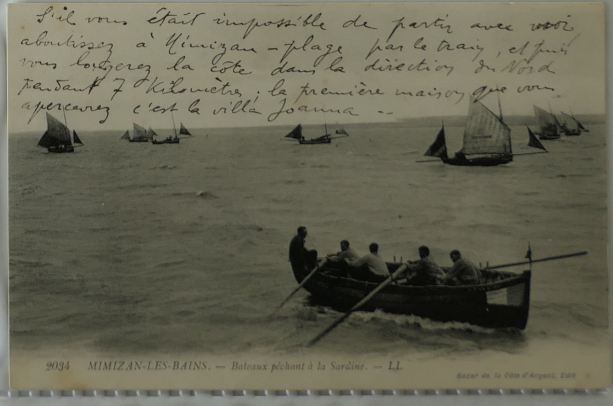 S'il vous était impossible de partir avec
aboutissez à Mimizan-plage par le train, et puis
vous longerez la côte dans la direction du Nord
pendant 7 Kilomètres; la première maison que vous
apercevrez c'est la villa Joanna --
2034 MIMIZAN-LES-BAINS. — Bateaux pêchant à la Sardine. — LL.
Bazar de la Côte d'Argent, Édit.